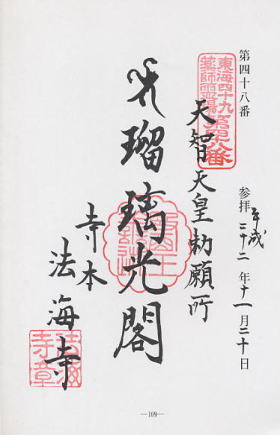 第四十八番
参拝 平成二十二年十一月二十日
東海四十九
薬師霊場
第四十八番
天智天皇勅願所
瑠璃光閣
寺本
法海寺
法海
寺章
—109—